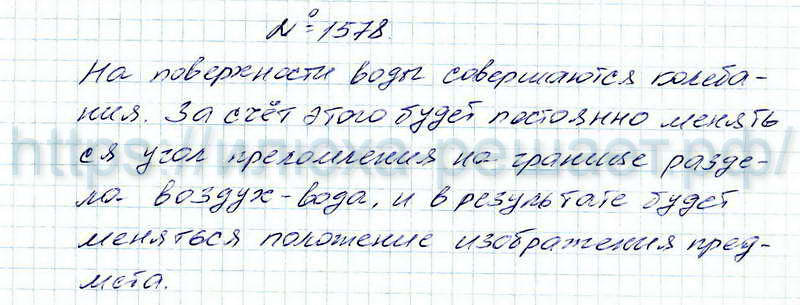 № 1578.
На поверхности воды совершаются колеба-
ния. За счёт этого будет постоянно менять
ся угол преломления на границе разде-
ла воздух-вода, и в результате будет
меняться положение изображения пред-
мета.